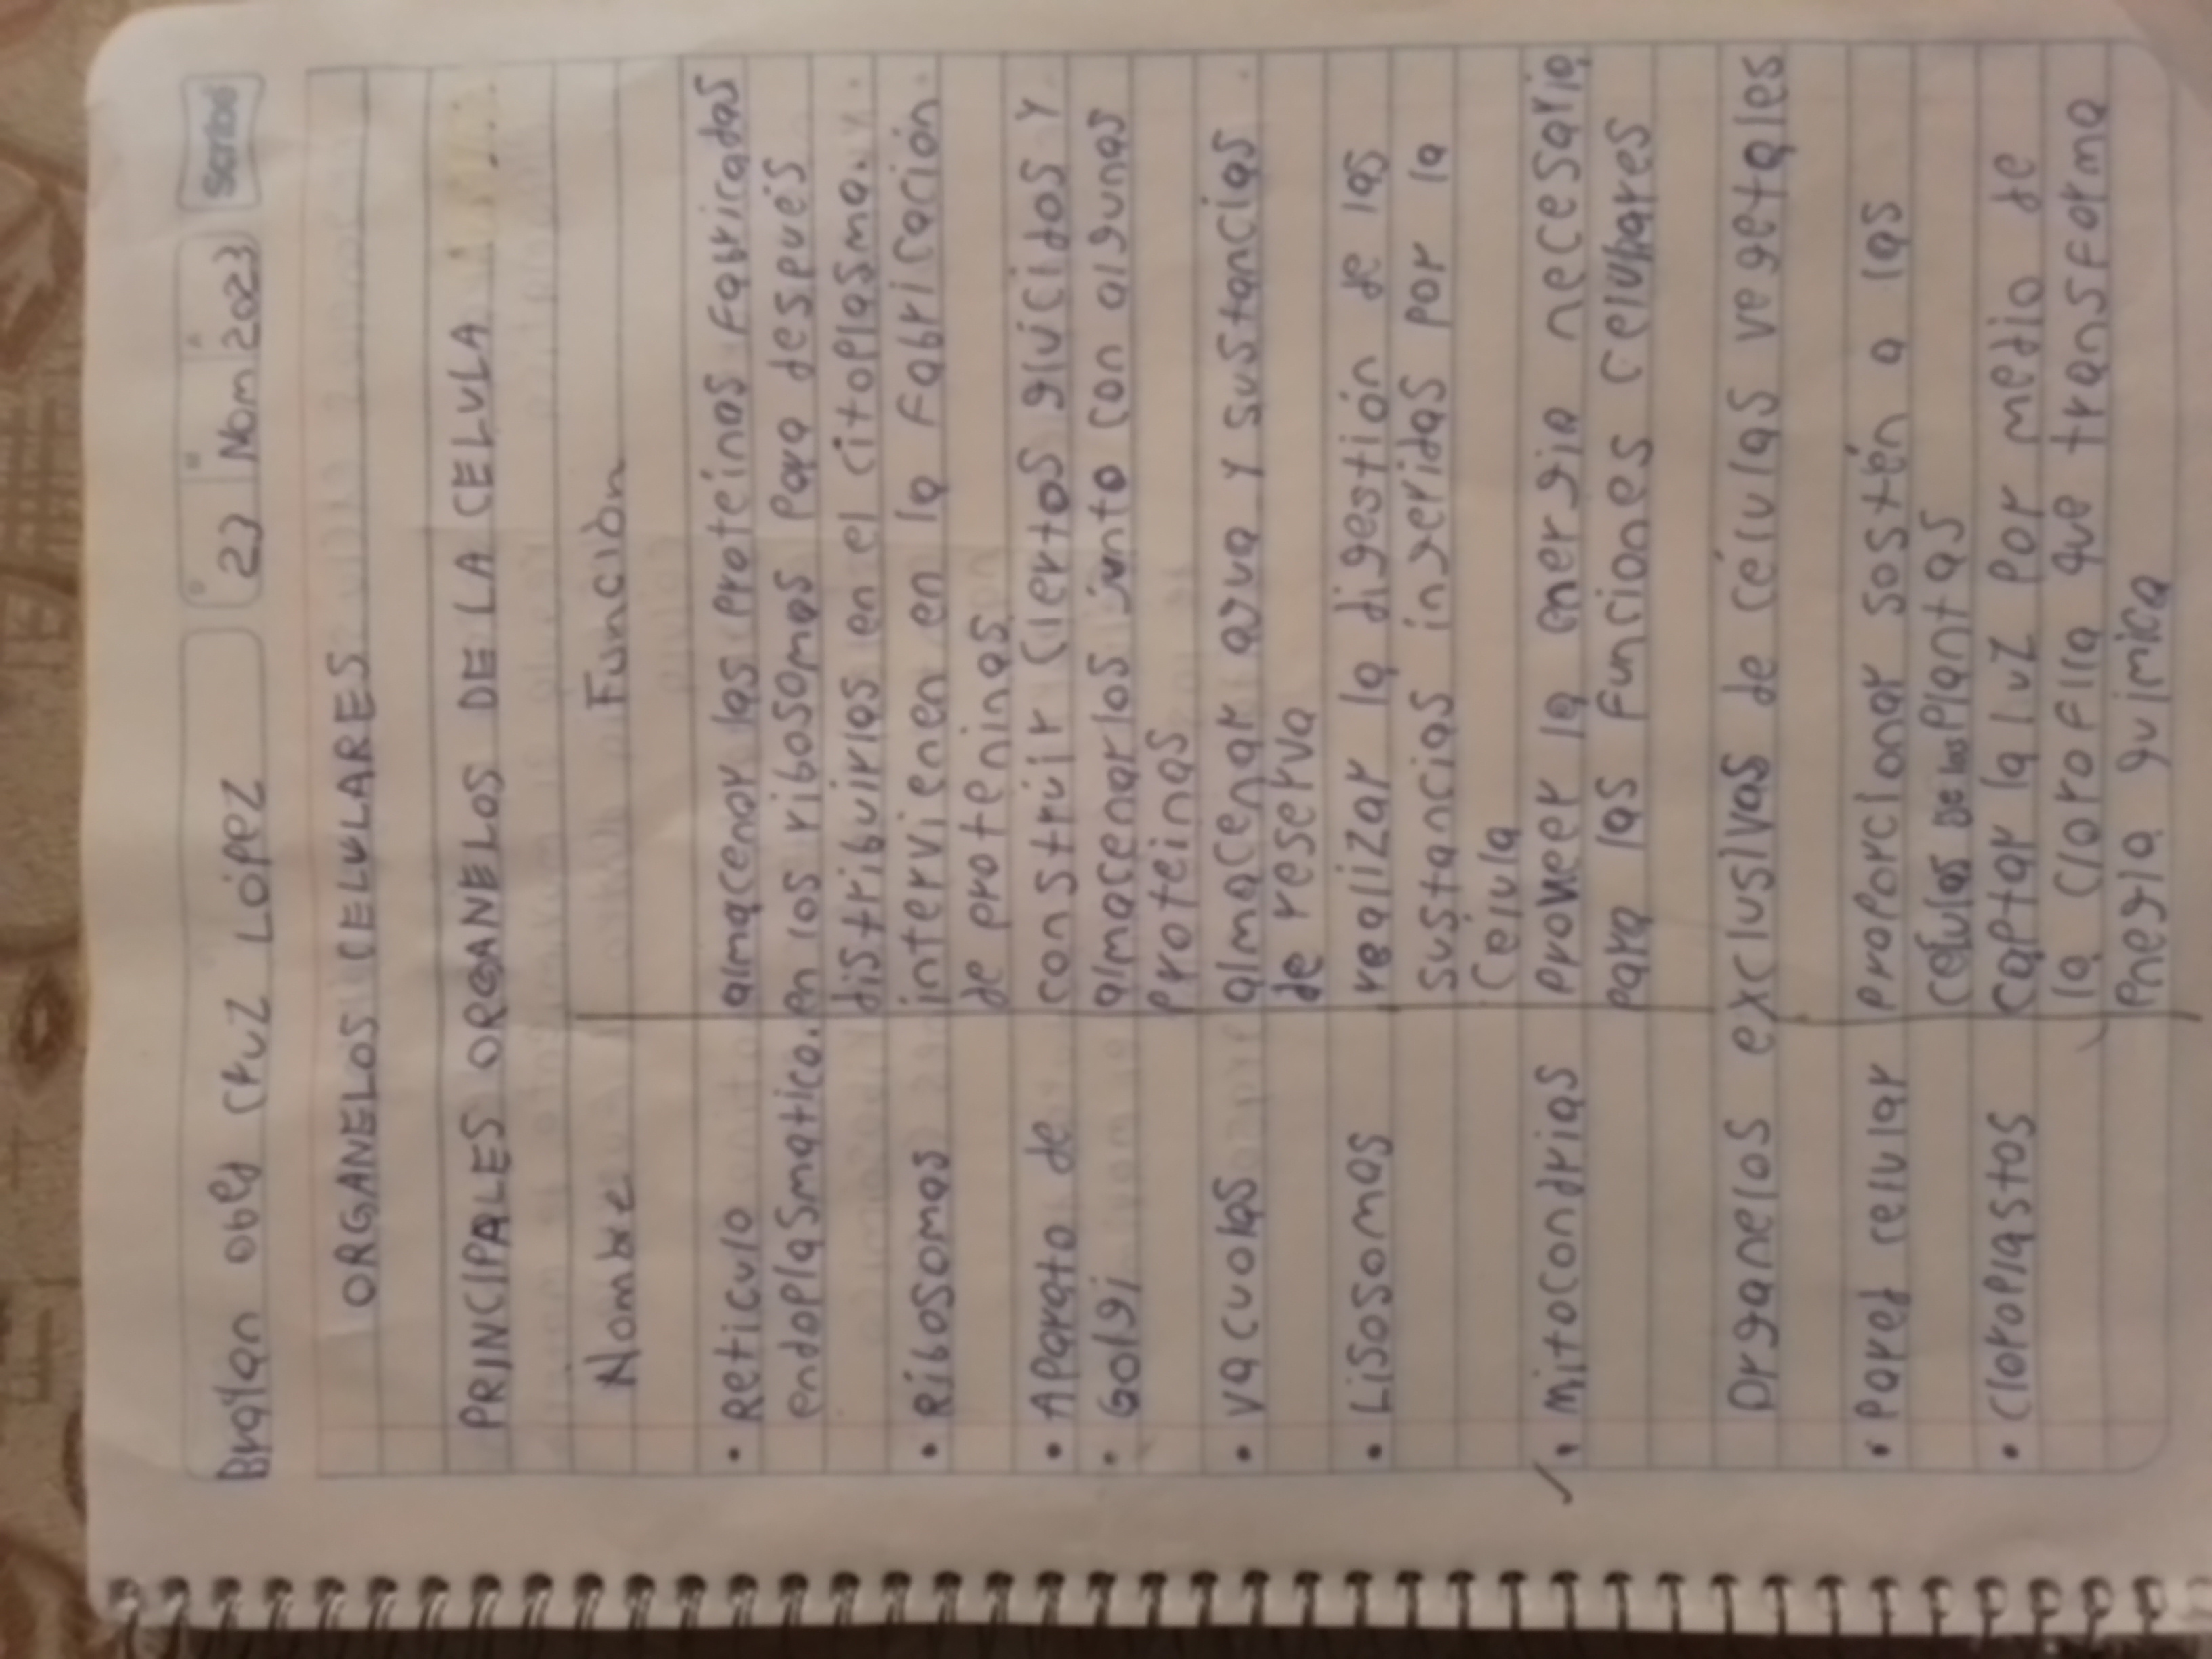 Brayan obed cruz López 23 Nom 2023 Scribe
ORGANELOS CELULARES
PRINCIPALES ORGANELOS DE LA CELULA
Nombre Función
• Reticulo almacenar las proteinas fabricadas
endoplasmatico. en los ribosomas para después
distribuirlas en el citoplasma.
• Ribosomas intervienen en la fabricación
de proteninas
• Aparato de construir ciertos glucidos y
• Golgi almacenarlos junto con algunas
proteinas
• vacuolas almacenar agua y sustancias
de reserva
• Lisosomas realizar la digestión de las
sustancias ingeridas por la
célula
• mitocondrias proveer la energia necesaria
para las funciones celulares
Organelos exclusivos de células vegetales
• Pared celular proporcionar sostén a las
celulas de las plantas
• cloroplastos captar la luz por medio de
la clorofila que transforma
enegia quimica